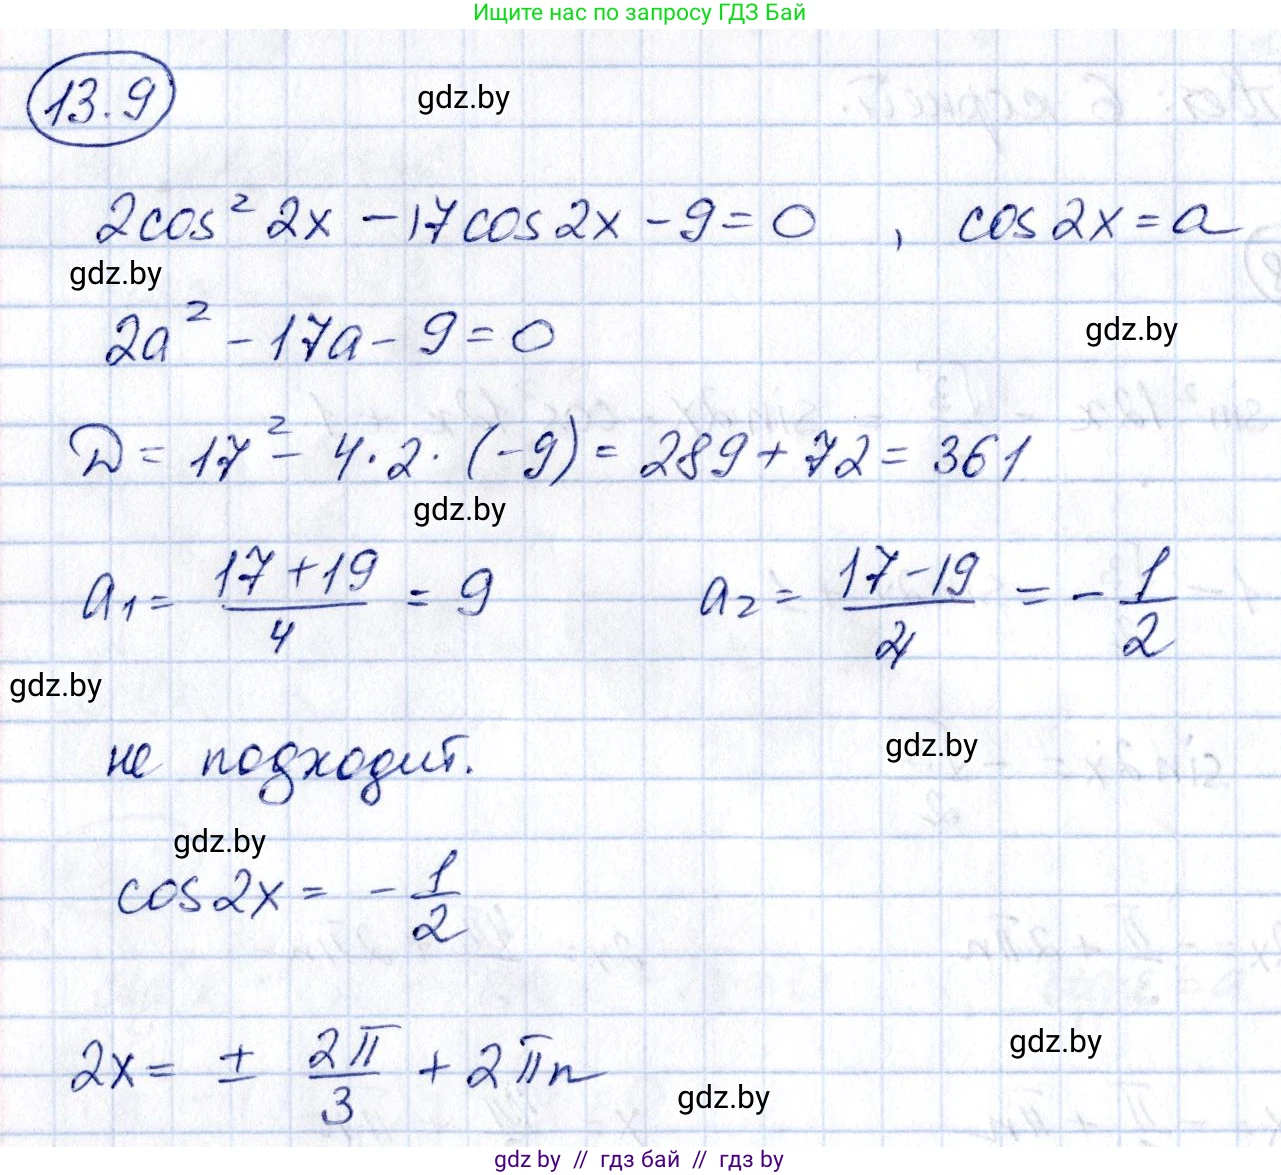 Ищите нас по запросу ГДЗ Бай
13.9
gdz.by
2cos² 2x − 17cos2x − 9 = 0 , cos2x = a
gdz.by
2a² − 17a − 9 = 0
gdz.by
D = 17² − 4·2·(−9) = 289 + 72 = 361
gdz.by
a₁ = (17+19)/4 = 9 a₂ = (17−19)/4 = −1/2
gdz.by
не подходит.
gdz.by
gdz.by
cos2x = −1/2
gdz.by
2x = ± 2π/3 + 2πn
gdz.by
gdz by // гдз бай // гдз by